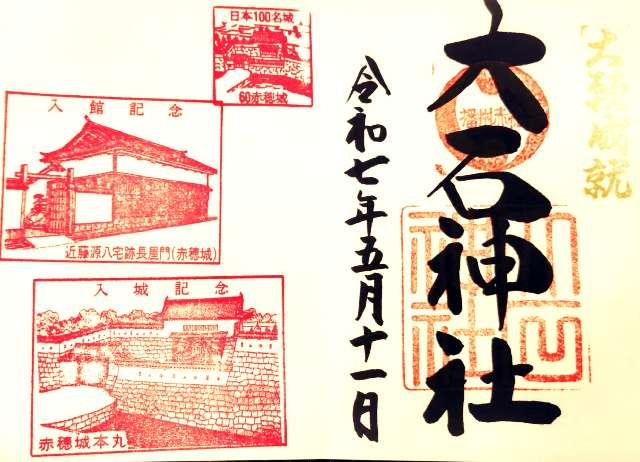 大願成就
大石神社
播州赤穂
令和七年五月十一日
日本100名城
60赤穂城
入館記念
近藤源八宅跡長屋門(赤穂城)
入城記念
赤穂城本丸